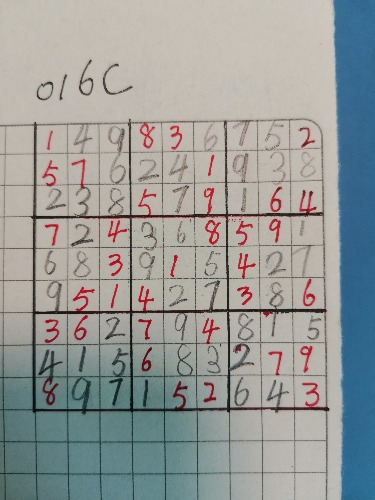 016C
1 4 9 8 3 6 7 5 2
5 7 6 2 4 1 9 3 8
2 3 8 5 7 9 1 6 4
7 2 4 3 6 8 5 9 1
6 8 3 9 1 5 4 2 7
9 5 1 4 2 7 3 8 6
3 6 2 7 9 4 8 1 5
4 1 5 6 8 3 2 7 9
8 9 7 1 5 2 6 4 3